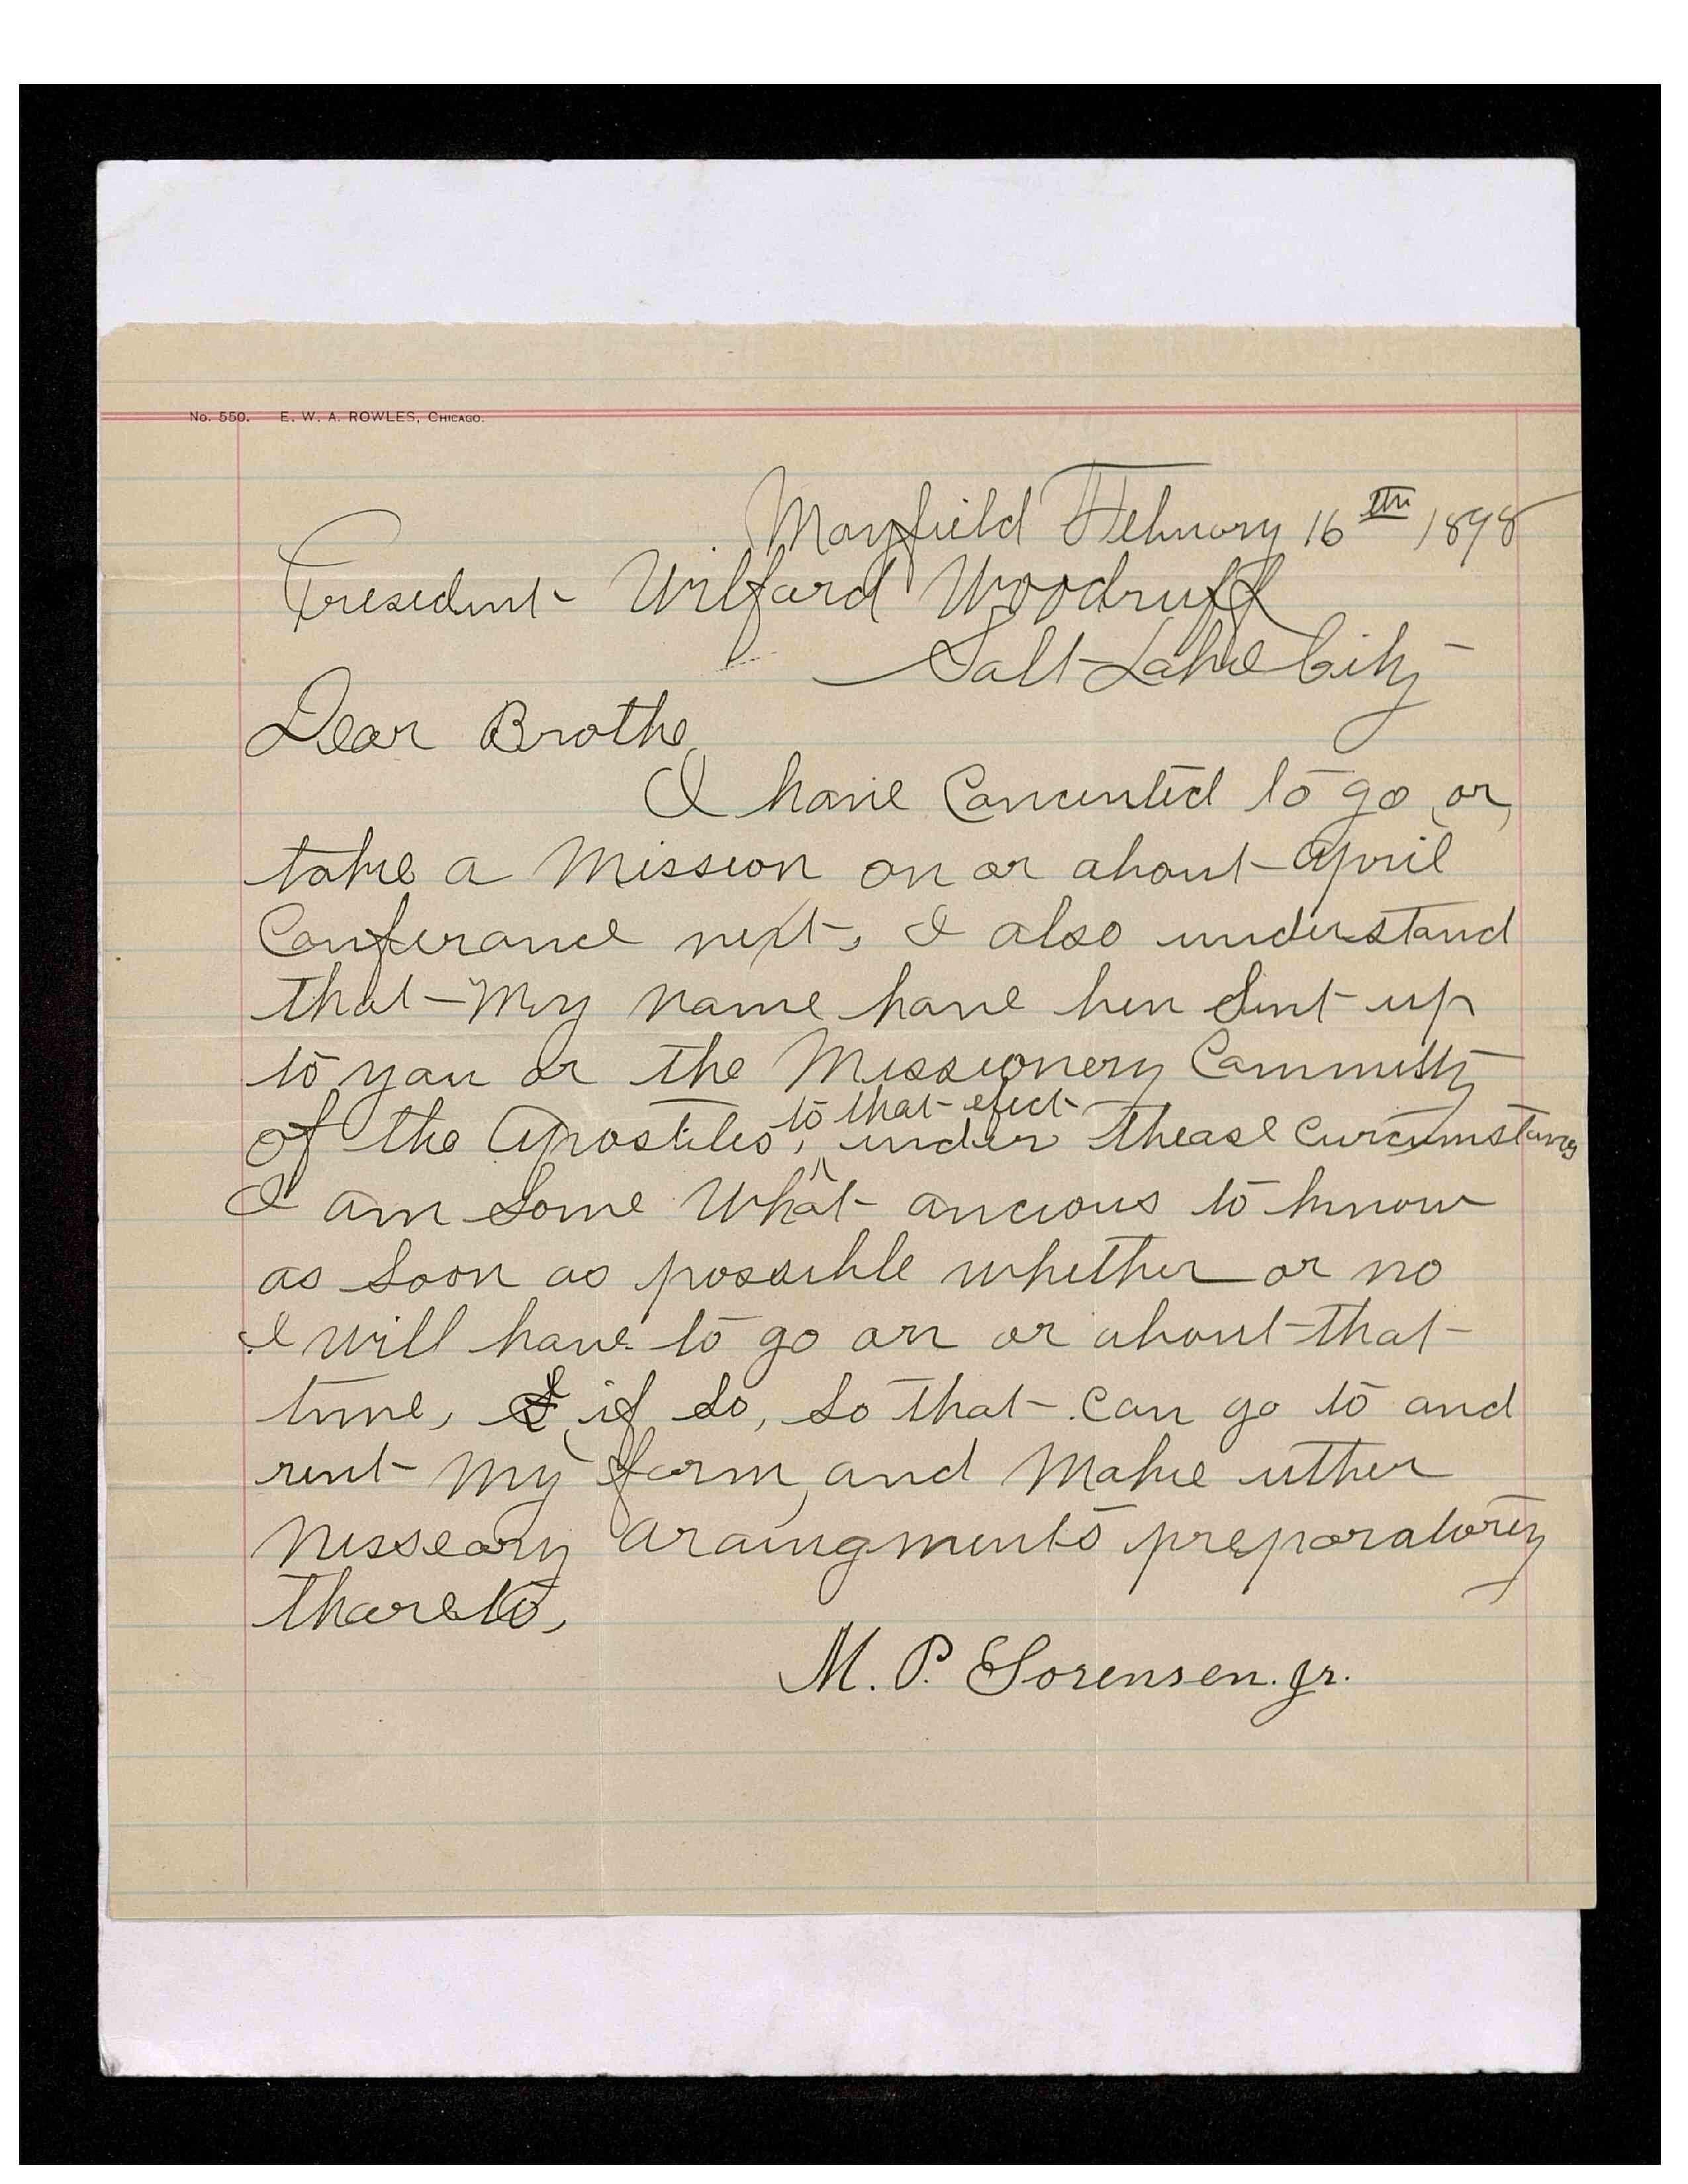 No. 550. E. W. A. ROWLES, CHICAGO.
Mayfield February 16th 1898
Presedent Wilford Woodruff
Salt Lake City
Dear Brothe
I have Concented to go or
take a Mission on or about April
Conferance next, I also understand
that My name have ben Sent up
to you or the Missionery Committy
to that efect
of the Apostles, ^ under thease Curcumstances
I am Some What ancious to know
as Soon as possible whether or no
I will have to go on or about that
time, & if So, So that Can go to and
rent My farm, and Make uther
Nesseary araingments preparatorey
thareto,
M. P. Sorensen. Jr.